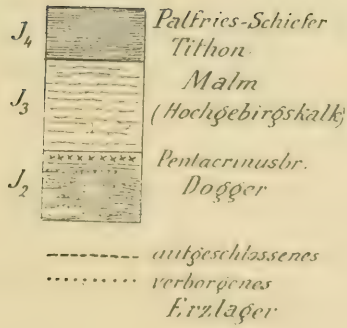 J4 Palfries-Schiefer
Tithon
J3 Malm
(Hochgebirgskalk)
J2 Pentacrinusbr.
Dogger
aufgeschlossenes
verborgenes
Erzlager